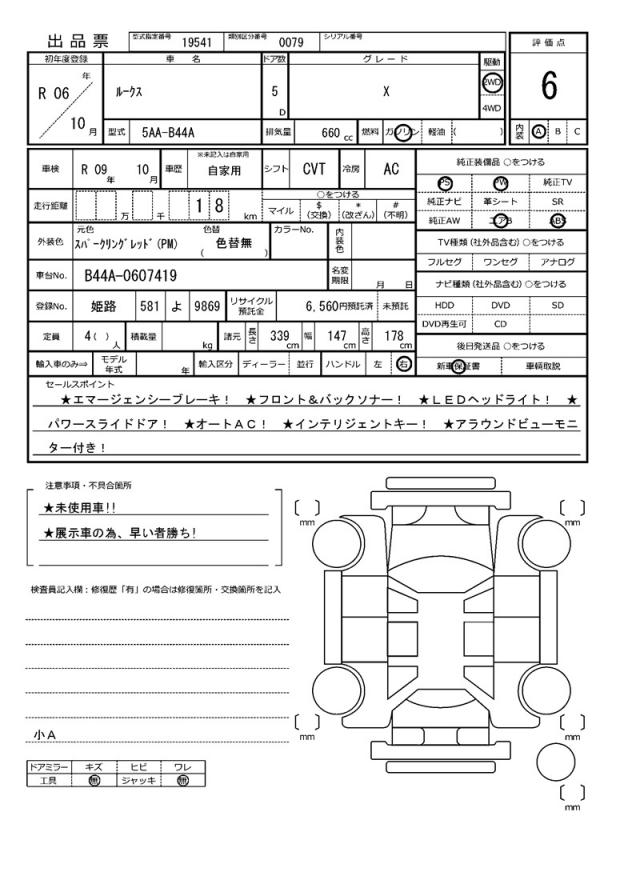 出品票 型式指定番号 19541 類別区分番号 0079 シリアル番号
初年度登録 車名 ドア数 グレード 駆動 評価点
R 06 年 10 月 ルークス 5 D X 2WD 4WD 6
型式 5AA-B44A 排気量 660 cc 燃料 ガソリン 軽油 ( ) 内装 A B C
車検 R 09 年 10 月 車歴 ※未記入は自家用 自家用 シフト CVT 冷房 AC 純正装備品 ○をつける
PS PW 純正TV
走行距離 万 千 1 8 km ○をつける 純正ナビ 革シート SR
マイル $ (交換) * (改ざん) # (不明) 純正AW エアB ABS
外装色 元色 スパークリングレッド(PM) 色替 ( 色替無 ) カラーNo. 内装色 TV種類(社外品含む)○をつける
フルセグ ワンセグ アナログ
車台No. B44A-0607419 名変期限 月 日 ナビ種類(社外品含む)○をつける
登録No. 姫路 581 よ 9869 リサイクル預託金 6,560円預託済 未預託 HDD DVD SD
DVD再生可 CD
定員 4( )人 積載量 kg 諸元 長さ 339 cm 幅 147 cm 高さ 178 cm 後日発送品 ○をつける
輸入車のみ⇒ モデル年式 年 輸入区分 ディーラー 並行 ハンドル 左 右 新車保証書 車輌取説
セールスポイント
★エマージェンシーブレーキ! ★フロント&バックソナー! ★LEDヘッドライト! ★
パワースライドドア! ★オートAC! ★インテリジェントキー! ★アラウンドビューモニ
ター付き!
注意事項・不具合箇所
★未使用車!!
★展示車の為、早い者勝ち!
検査員記入欄:修復歴「有」の場合は修復箇所・交換箇所を記入
小A
ドアミラー キズ ヒビ ワレ
工具 無 ジャッキ 無
mm
mm
mm
mm
mm